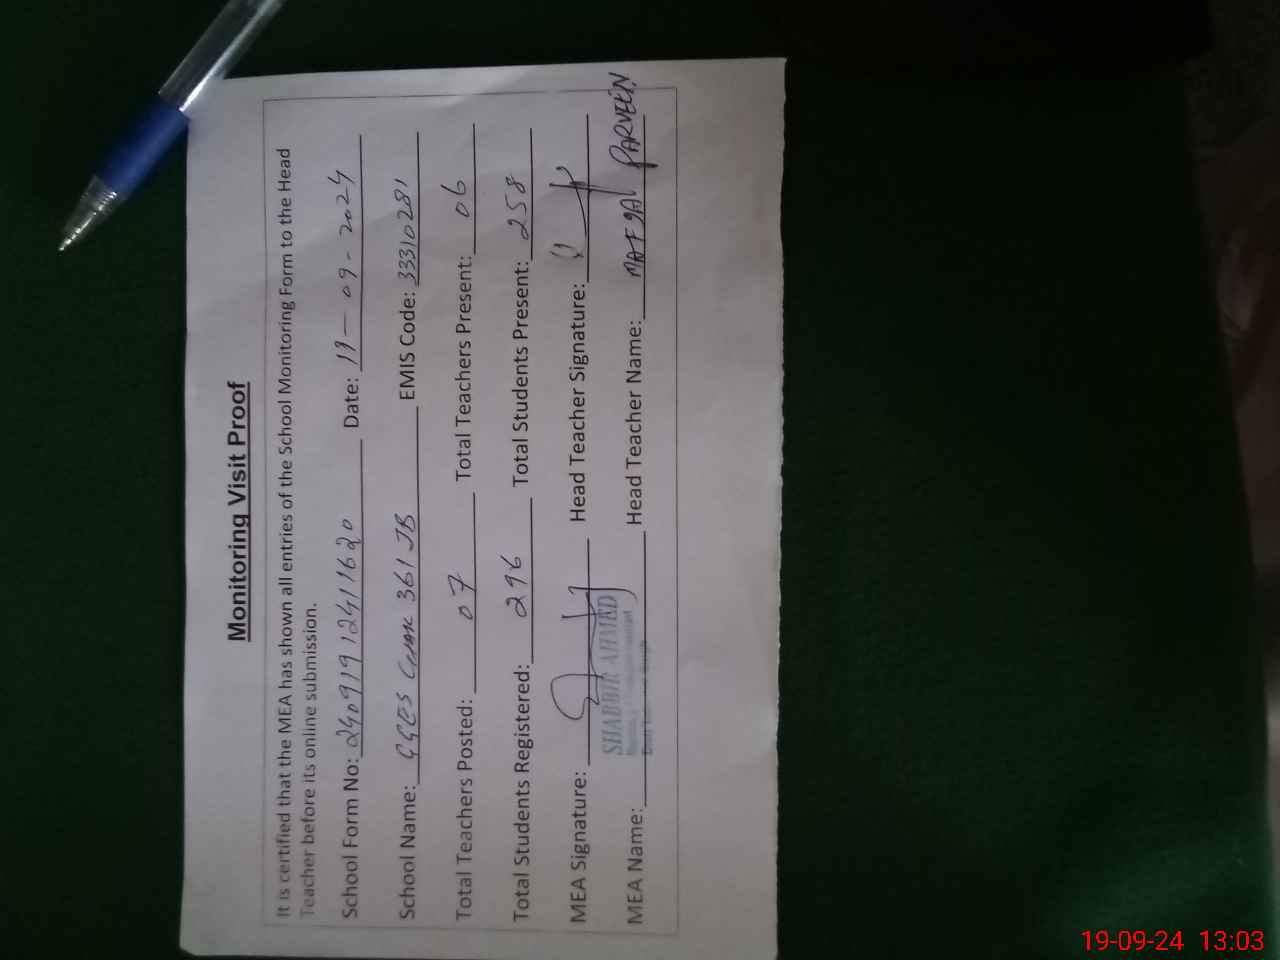 Monitoring Visit Proof
It is certified that the MEA has shown all entries of the School Monitoring Form to the Head
Teacher before its online submission.
School Form No: 240919124111620 Date: 19-09-2024
School Name: GGES Chak 361 JB EMIS Code: 33310281
Total Teachers Posted: 07 Total Teachers Present: 06
Total Students Registered: 296 Total Students Present: 258
MEA Signature: Head Teacher Signature:
MEA Name: SHABBIR AHMED Head Teacher Name: PARVEEN
19-09-24 13:03